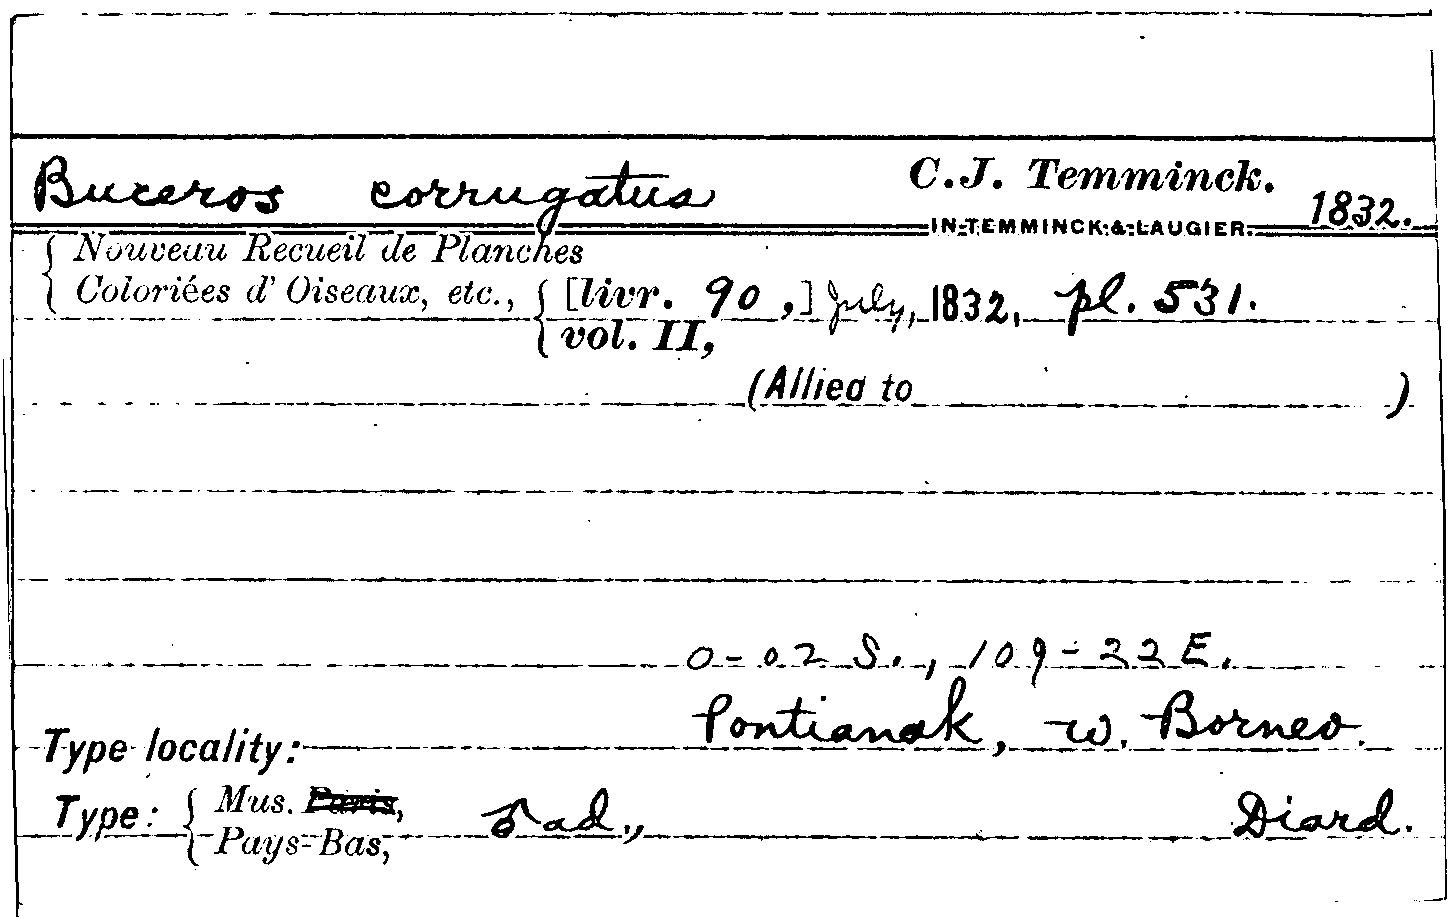 Buceros corrugatus C. J. Temminck. 1832.
IN TEMMINCK & LAUGIER.
Nouveau Recueil de Planches
Coloriées d' Oiseaux, etc., [livr. 90,] July, 1832, pl. 531.
vol. II,
(Allied to )
0-02 S., 109-22 E.
Type locality: Pontianak, W. Borneo.
Type: Mus. Paris, ad., Diard.
Pays-Bas,